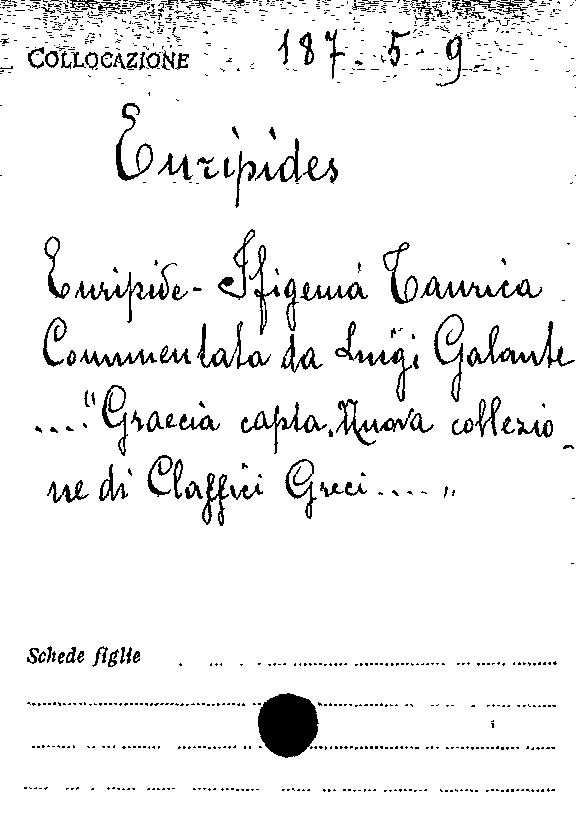 COLLOCAZIONE 187. 5. 9
Euripides
Euripide - Ifigenia Taurica
Commentata da Luigi Galante
...."Graecia capta. Nuova collezio-
ne di Classici Greci...."
Schede figlie